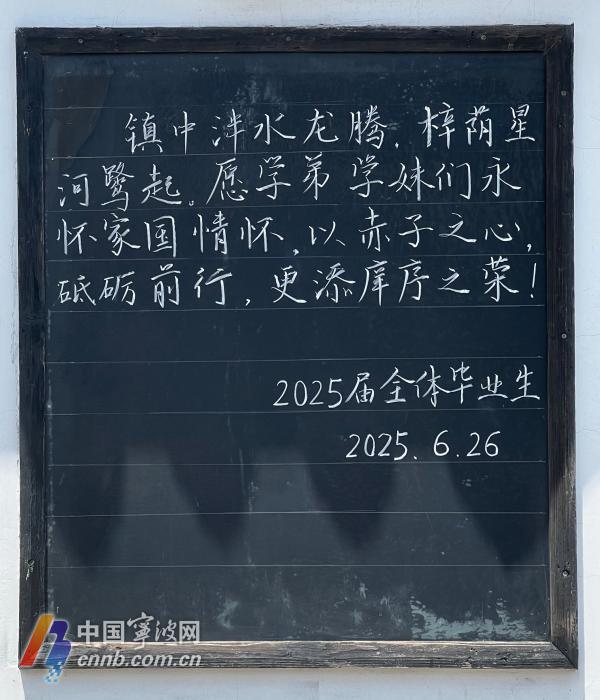 镇中泮水龙腾,梓荫星
河鹭起。愿学弟学妹们永
怀家国情怀,以赤子之心,
砥砺前行,更添庠序之荣!
2025届全体毕业生
2025.6.26
中国宁波网
cnnb.com.cn